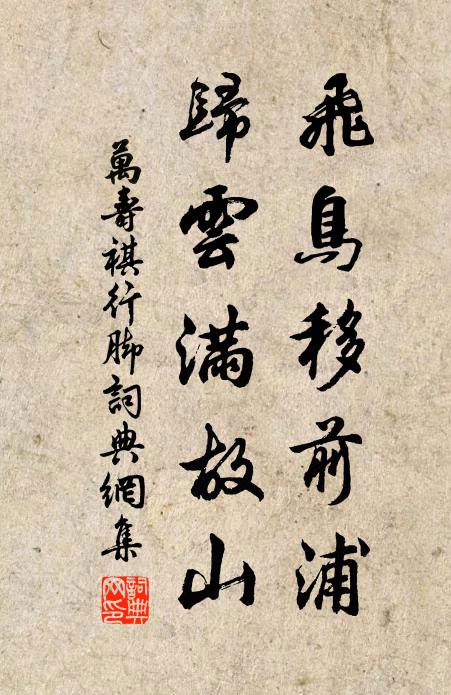 飛鳥移前浦
歸雲滿故山
萬壽祺行脚詞典網集
詞典網印